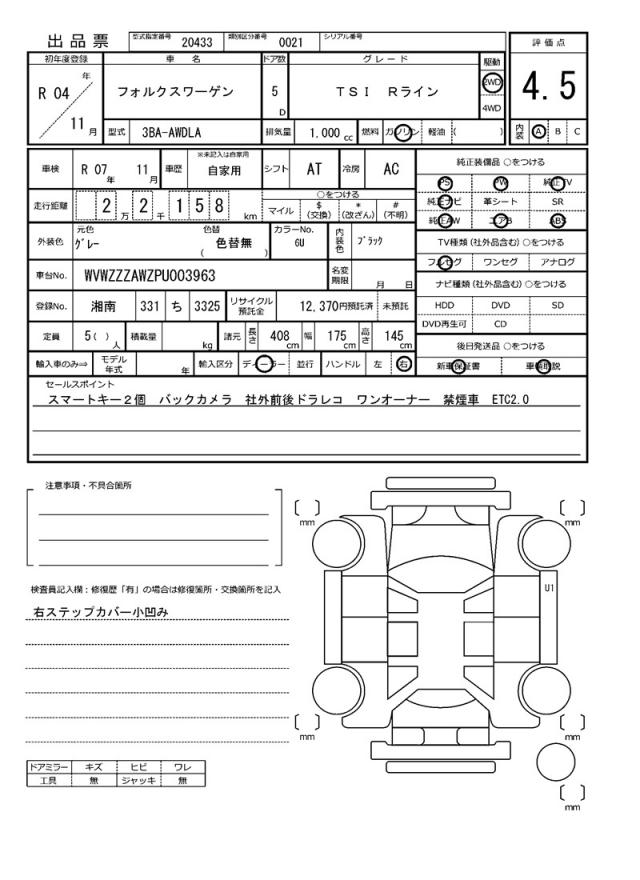 出品票 型式指定番号 20433 類別区分番号 0021 シリアル番号
初年度登録 車名 ドア数 グレード 駆動 評価点
R 04 年 フォルクスワーゲン 5 D TSI Rライン 2WD 4.5
4WD
11 月 型式 3BA-AWDLA 排気量 1.000 cc 燃料 ガソリン 軽油 ( ) 内装 A B C
車検 R 07 年 11 月 車歴 ※未記入は自家用 自家用 シフト AT 冷房 AC 純正装備品 ○をつける
PS PW 純正TV
走行距離 2 万 2 千 1 5 8 km ○をつける 純正ナビ 革シート SR
マイル $ (交換) * (改ざん) # (不明) 純正AW エアB ABS
外装色 元色 グレー 色替 色替無 ( ) カラーNo. 6U 内装色 ブラック TV種類(社外品含む)○をつける
フルセグ ワンセグ アナログ
車台No. WVWZZZAWZPU003963 名変期限 月 日 ナビ種類(社外品含む)○をつける
登録No. 湘南 331 ち 3325 リサイクル預託金 12,370円預託済 未預託 HDD DVD SD
DVD再生可 CD
定員 5( ) 人 積載量 kg 諸元 長さ 408 cm 幅 175 cm 高さ 145 cm 後日発送品 ○をつける
輸入車のみ⇒ モデル年式 年 輸入区分 ディーラー 並行 ハンドル 左 右 新車保証書 車輌取説
セールスポイント
スマートキー2個 バックカメラ 社外前後ドラレコ ワンオーナー 禁煙車 ETC2.0
注意事項・不具合箇所
mm mm
検査員記入欄:修復歴「有」の場合は修復箇所・交換箇所を記入
U1
右ステップカバー小凹み
mm mm
ドアミラー キズ ヒビ ワレ
工具 無 ジャッキ 無
mm